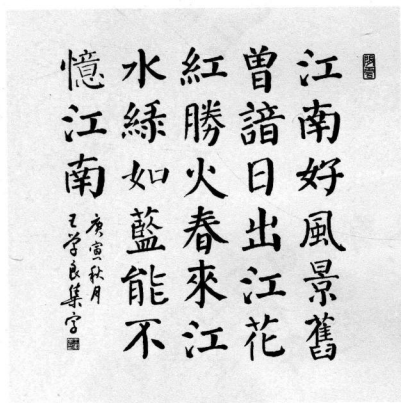 江南好風景舊
曾諳日出江花
紅勝火春來江
水綠如藍能不
憶江南
庚寅秋月
王学良集字